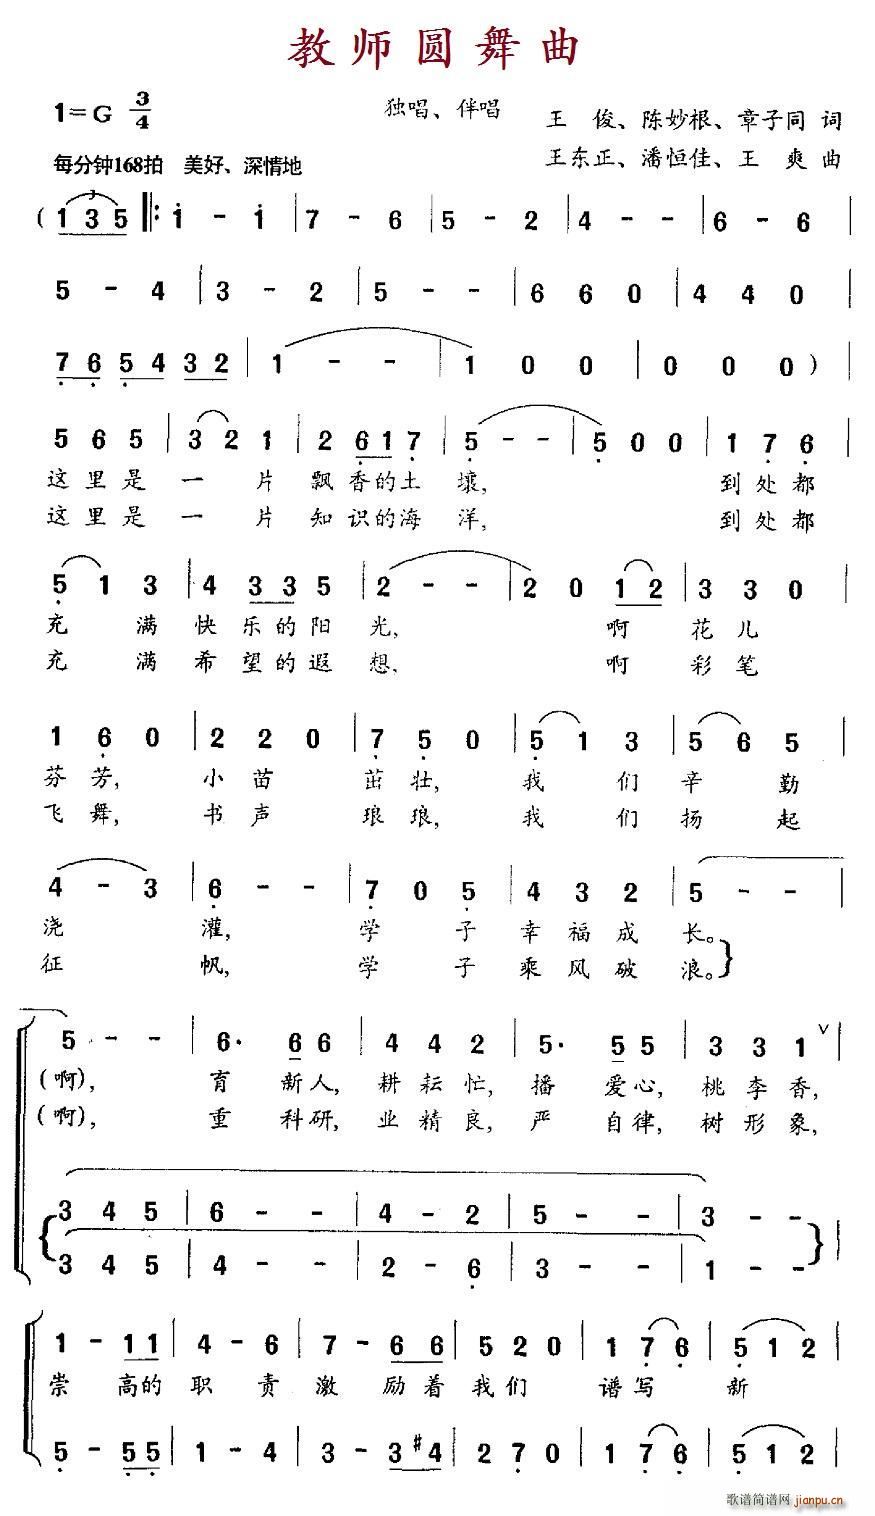 教师圆舞曲
1=G 3/4
独唱、伴唱
王 俊、陈妙根、章子同 词
每分钟168拍 美好、深情地
王东正、潘恒佳、王 爽 曲
( 1 3 5 ‖: 1 - 1 | 7 - 6 | 5 - 2 | 4 - - | 6 - 6 |
5 - 4 | 3 - 2 | 5 - - | 6 6 0 | 4 4 0 |
7 6 5 4 3 2 | 1 - - | 1 0 0 | 0 0 0 ) |
5 6 5 | 3 2 1 | 2 6 1 7 | 5 - - | 5 0 0 | 1 7 6
这里是一 片 飘香的土 壤, 到处都
这里是一 片 知识的海 洋, 到处都
5 1 3 | 4 3 3 5 | 2 - - | 2 0 1 2 | 3 3 0 |
充 满 快乐的阳 光, 啊 花儿
充 满 希望的遐 想, 啊 彩笔
1 6 0 | 2 2 0 | 7 5 0 | 5 1 3 | 5 6 5 |
芬芳, 小苗 茁壮, 我 们 辛 勤
飞舞, 书声 琅琅, 我 们 扬 起
4 - 3 | 6 - - | 7 0 5 | 4 3 2 | 5 - - |
浇 灌, 学 子 幸福成 长。
征 帆, 学 子 乘风破 浪。
5 - - | 6· 6 6 | 4 4 2 | 5· 5 5 | 3 3 1 ∨ |
(啊), 育 新人, 耕耘忙, 播 爱心, 桃李香,
(啊), 重 科研, 业精良, 严 自律, 树形象,
3 4 5 | 6 - - | 4 - 2 | 5 - - | 3 - - |
3 4 5 | 4 - - | 2 - 6 | 3 - - | 1 - - |
1 - 1 1 | 4 - 6 | 7 - 6 6 | 5 2 0 | 1 7 6 | 5 1 2 |
崇 高的 职 责 激 励着 我们 谱写 新
5 - 5 5 | 1 - 4 | 3 - 3 #4 | 2 7 0 | 1 7 6 | 5 1 2 |
歌谱简谱网
jianpu.cn